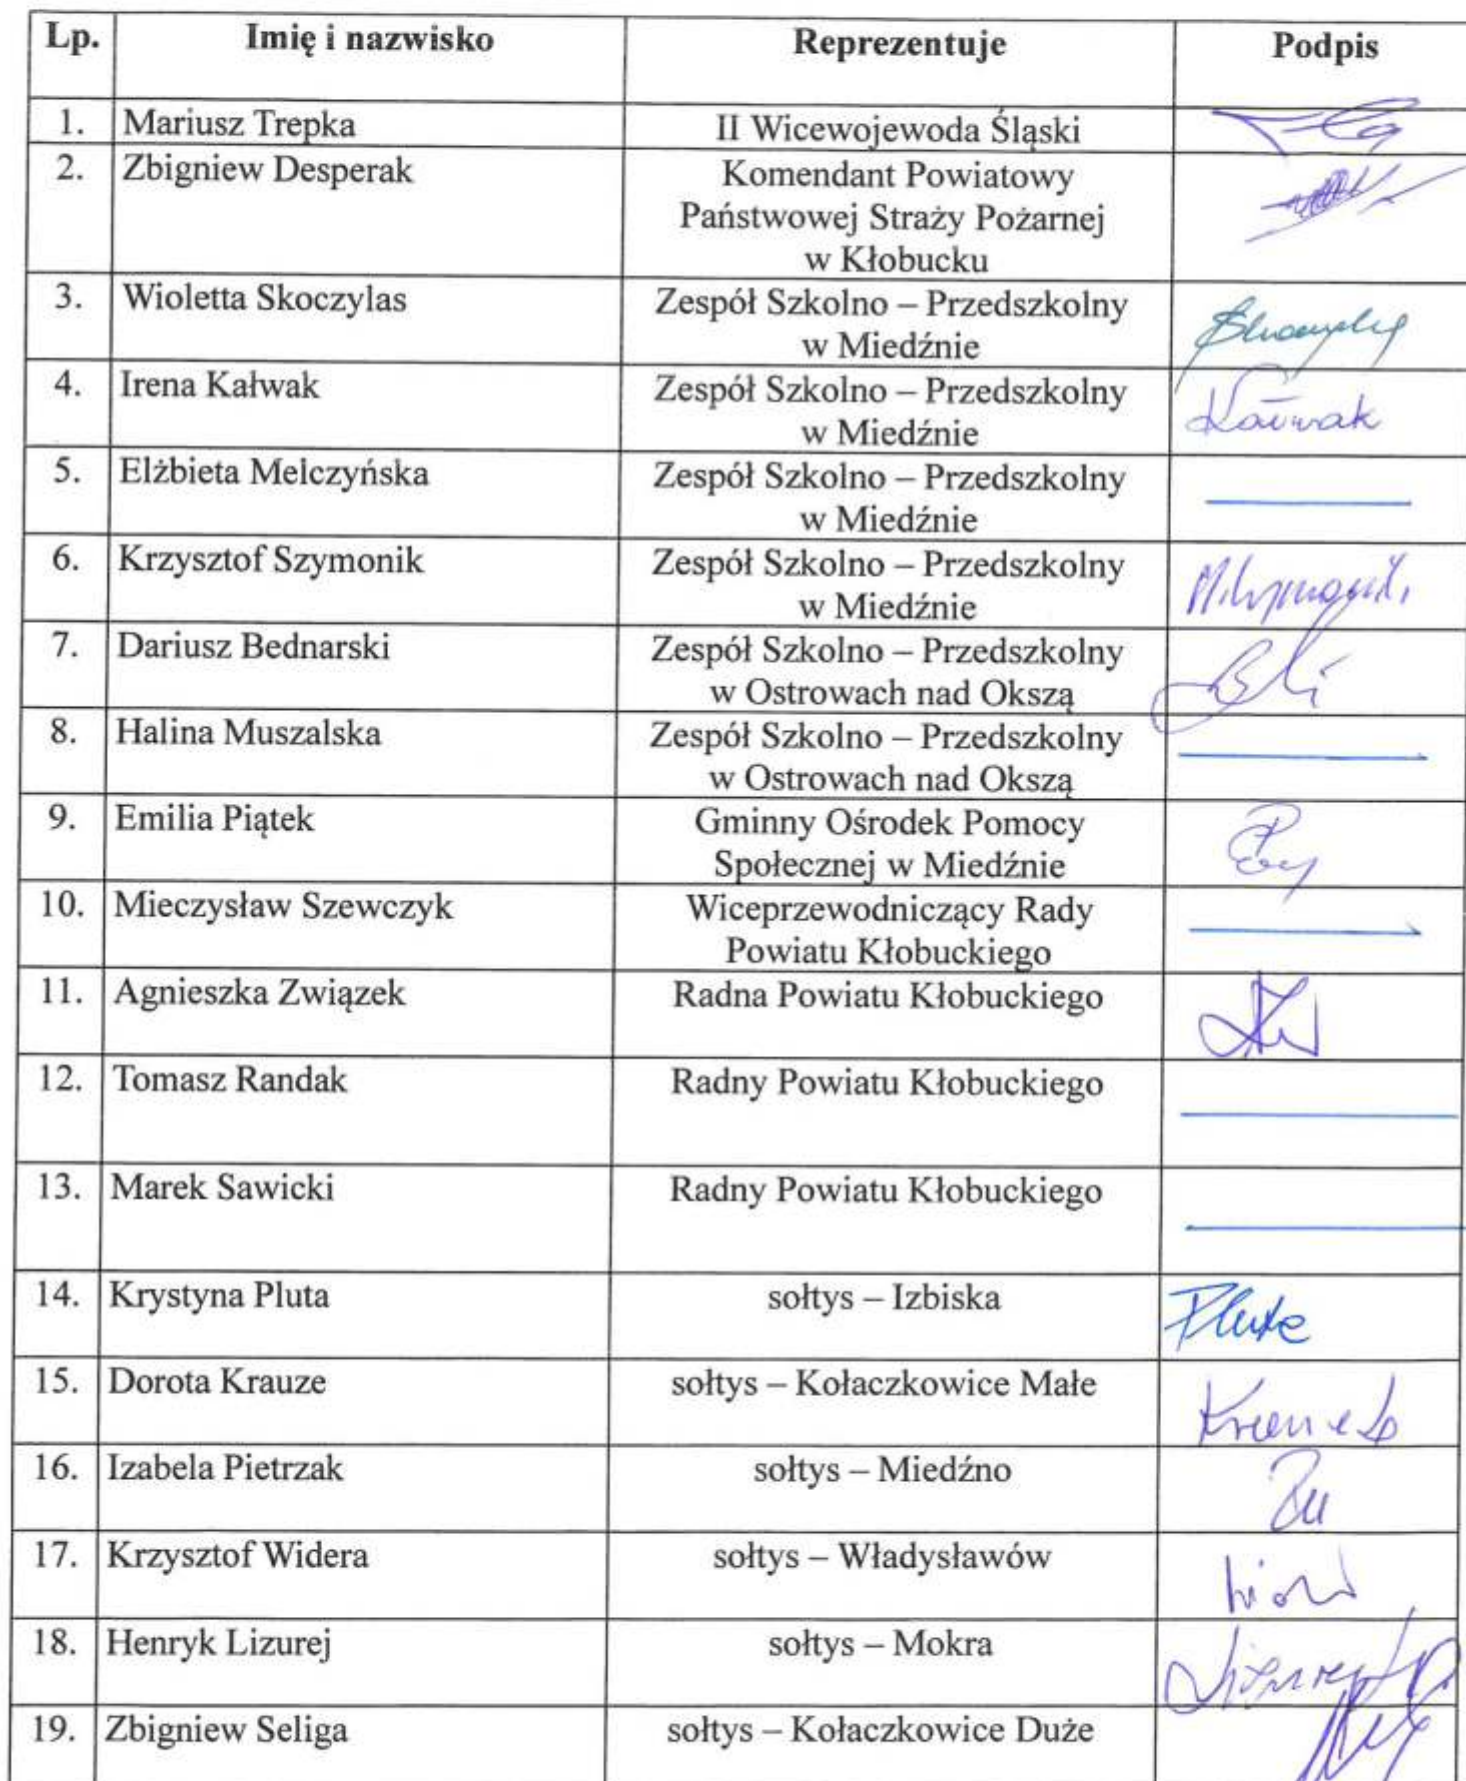 Lp. Imię i nazwisko Reprezentuje Podpis
1. Mariusz Trepka II Wicewojewoda Śląski
2. Zbigniew Desperak Komendant Powiatowy
Państwowej Straży Pożarnej
w Kłobucku
3. Wioletta Skoczylas Zespół Szkolno – Przedszkolny
w Miedźnie
4. Irena Kałwak Zespół Szkolno – Przedszkolny Kałwak
w Miedźnie
5. Elżbieta Melczyńska Zespół Szkolno – Przedszkolny
w Miedźnie
6. Krzysztof Szymonik Zespół Szkolno – Przedszkolny
w Miedźnie
7. Dariusz Bednarski Zespół Szkolno – Przedszkolny
w Ostrowach nad Okszą
8. Halina Muszalska Zespół Szkolno – Przedszkolny
w Ostrowach nad Okszą
9. Emilia Piątek Gminny Ośrodek Pomocy
Społecznej w Miedźnie
10. Mieczysław Szewczyk Wiceprzewodniczący Rady
Powiatu Kłobuckiego
11. Agnieszka Związek Radna Powiatu Kłobuckiego
12. Tomasz Randak Radny Powiatu Kłobuckiego
13. Marek Sawicki Radny Powiatu Kłobuckiego
14. Krystyna Pluta sołtys – Izbiska Pluta
15. Dorota Krauze sołtys – Kołaczkowice Małe
16. Izabela Pietrzak sołtys – Miedźno
17. Krzysztof Widera sołtys – Władysławów
18. Henryk Lizurej sołtys – Mokra
19. Zbigniew Seliga sołtys – Kołaczkowice Duże